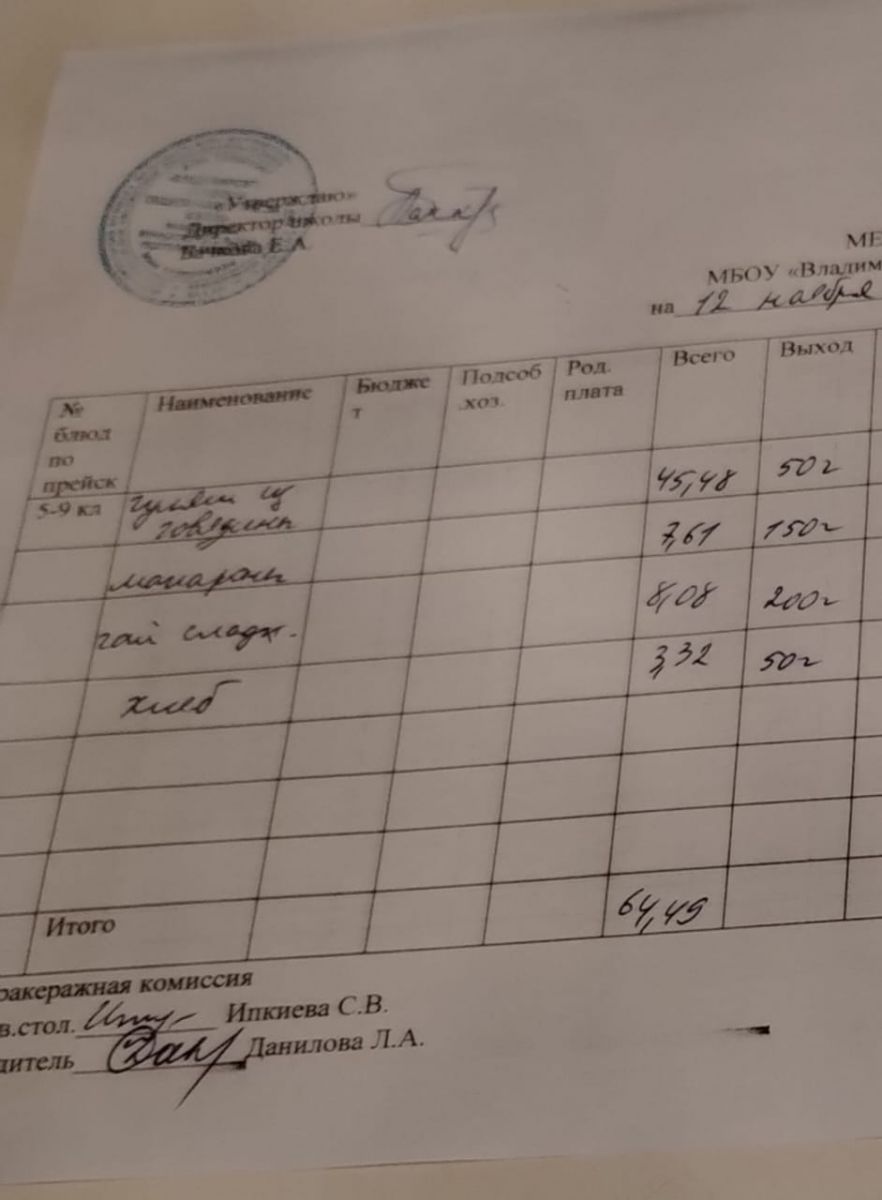 «Утверждаю»
Директор школы
Е.А.
МЕ
МБОУ «Владим
на 12 ноября
№ блюд по прейск Наименование Бюдже т Подсоб .хоз. Род. плата Всего Выход
5-9 кл гуляш из говядины 45,48 50г
макароны 7,61 150г
чай сладк. 8,08 200г
хлеб 3,32 50г
Итого 64,49
ракеражная комиссия
в.стол. Ипкиева С.В.
дитель Данилова Л.А.